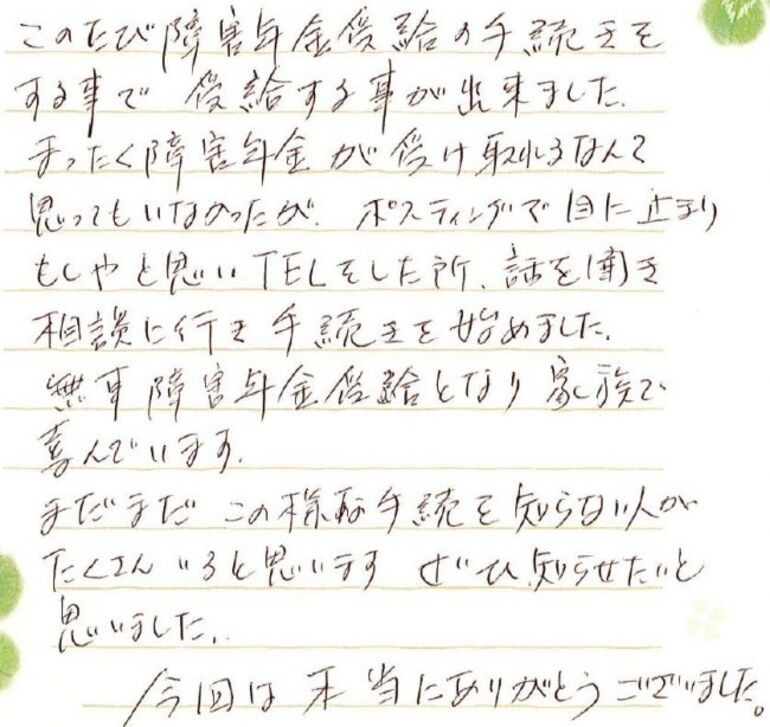 このたび障害年金受給の手続きを
する事で 受給する事が出来ました.
まったく障害年金が受け取れるなんて
思ってもいなかったが、ポスティングで目に止まり
もしやと思いTELをした所、話を聞き
相談に行き手続きを始めました.
無事障害年金受給となり家族で
喜んでいます.
まだまだ この様な手続を知らない人が
たくさんいると思います ぜひ知らせたいと
思いました..
今回は本当にありがとうございました。